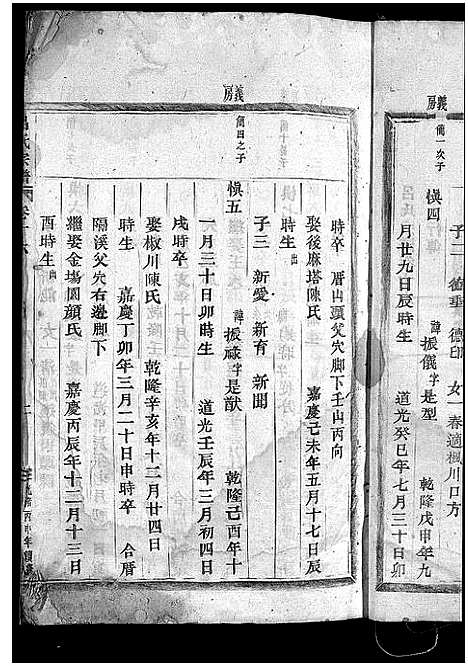 義房
蕳一次子
子二 德垂 德印 女一春適楓川口方
愼四 諱振儀字是型 乾隆戊申年九
月廿九日辰時生 道光癸巳年七月三十日卯
時卒 厝山頭父穴脚下壬山丙向
娶後麻塔陳氏 嘉慶己未年五月十七日辰
時生 出
子三 新愛 新育 新聞
義房
蕳四之子
愼五 諱振祿字是猷 乾隆己酉年十
一月三十日卯時生 道光壬辰年三月初四日
戌時卒
娶椒川陳氏 乾隆辛亥年十二月廿四日
時生 嘉慶丁卯年三月二十日申時卒 合厝
隔溪父穴右邊脚下
繼娶金塲園顔氏 嘉慶丙辰年十二月十三日
酉時生 出
呂氏宗譜